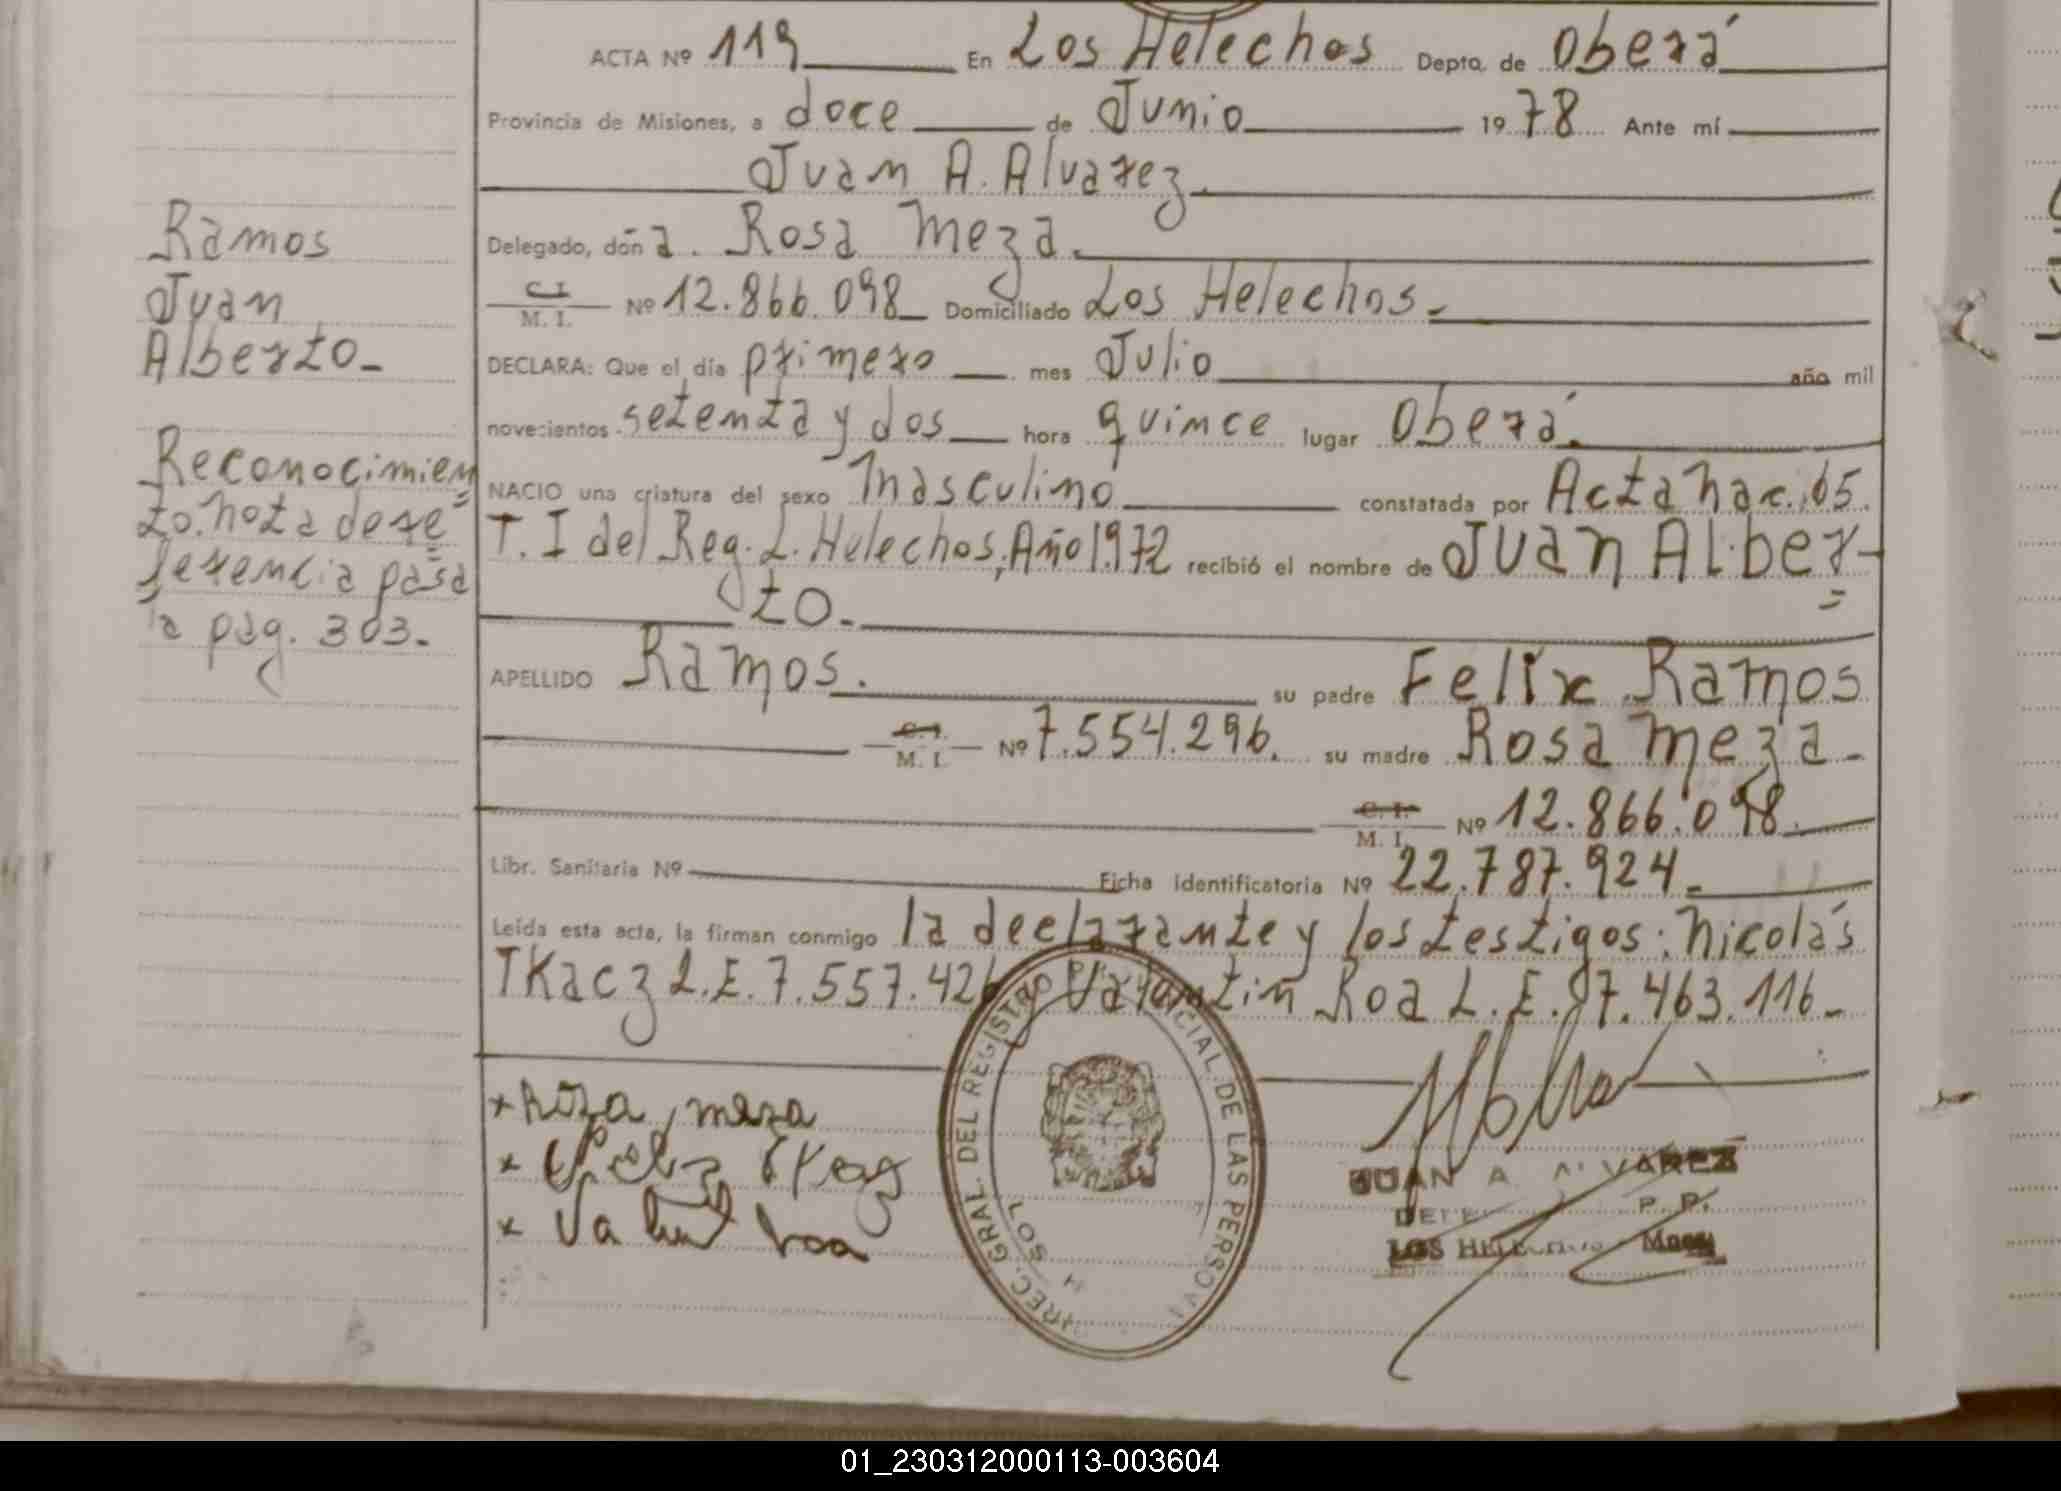 ACTA Nº 119 En Los Helechos Depto. de Oberá
Provincia de Misiones, a doce de Junio 1978 Ante mí
Juan A. Alvarez
Delegado, doña. Rosa Meza.
C. I. / M. I. Nº 12.866.098 Domiciliado Los Helechos.-
DECLARA: Que el día primero mes Julio año mil
novecientos setenta y dos hora quince lugar Oberá.
NACIO una criatura del sexo Masculino constatada por Acta Nac. 65.
T. I del Reg. L. Helechos, Año 1972 recibió el nombre de Juan Alber=
to.-
APELLIDO Ramos. su padre Felix Ramos
C. I. / M. I. Nº 7.554.296. su madre Rosa Meza-
C. I. / M. I. Nº 12.866.098.
Libr. Sanitaria Nº Ficha identificatoria Nº 22.787.924-
Leída esta acta, la firman conmigo la declarante y los testigos: Nicolás
Tkacz L.E. 7.557.426 y Valentin Roa L. E. 7.463.116-
Ramos
Juan
Alberto-
Reconocimien=
to. Nota de re=
ferencia pasa
a pag. 303.-
x Rosa meza
x
x Valentin roa
DIREC. GRAL. DEL REGISTRO PROVINCIAL DE LAS PERSONAS
LOS H
JUAN A. ALVAREZ
DELE R. P. P.
LOS HELECHOS Mnes
01_230312000113-003604